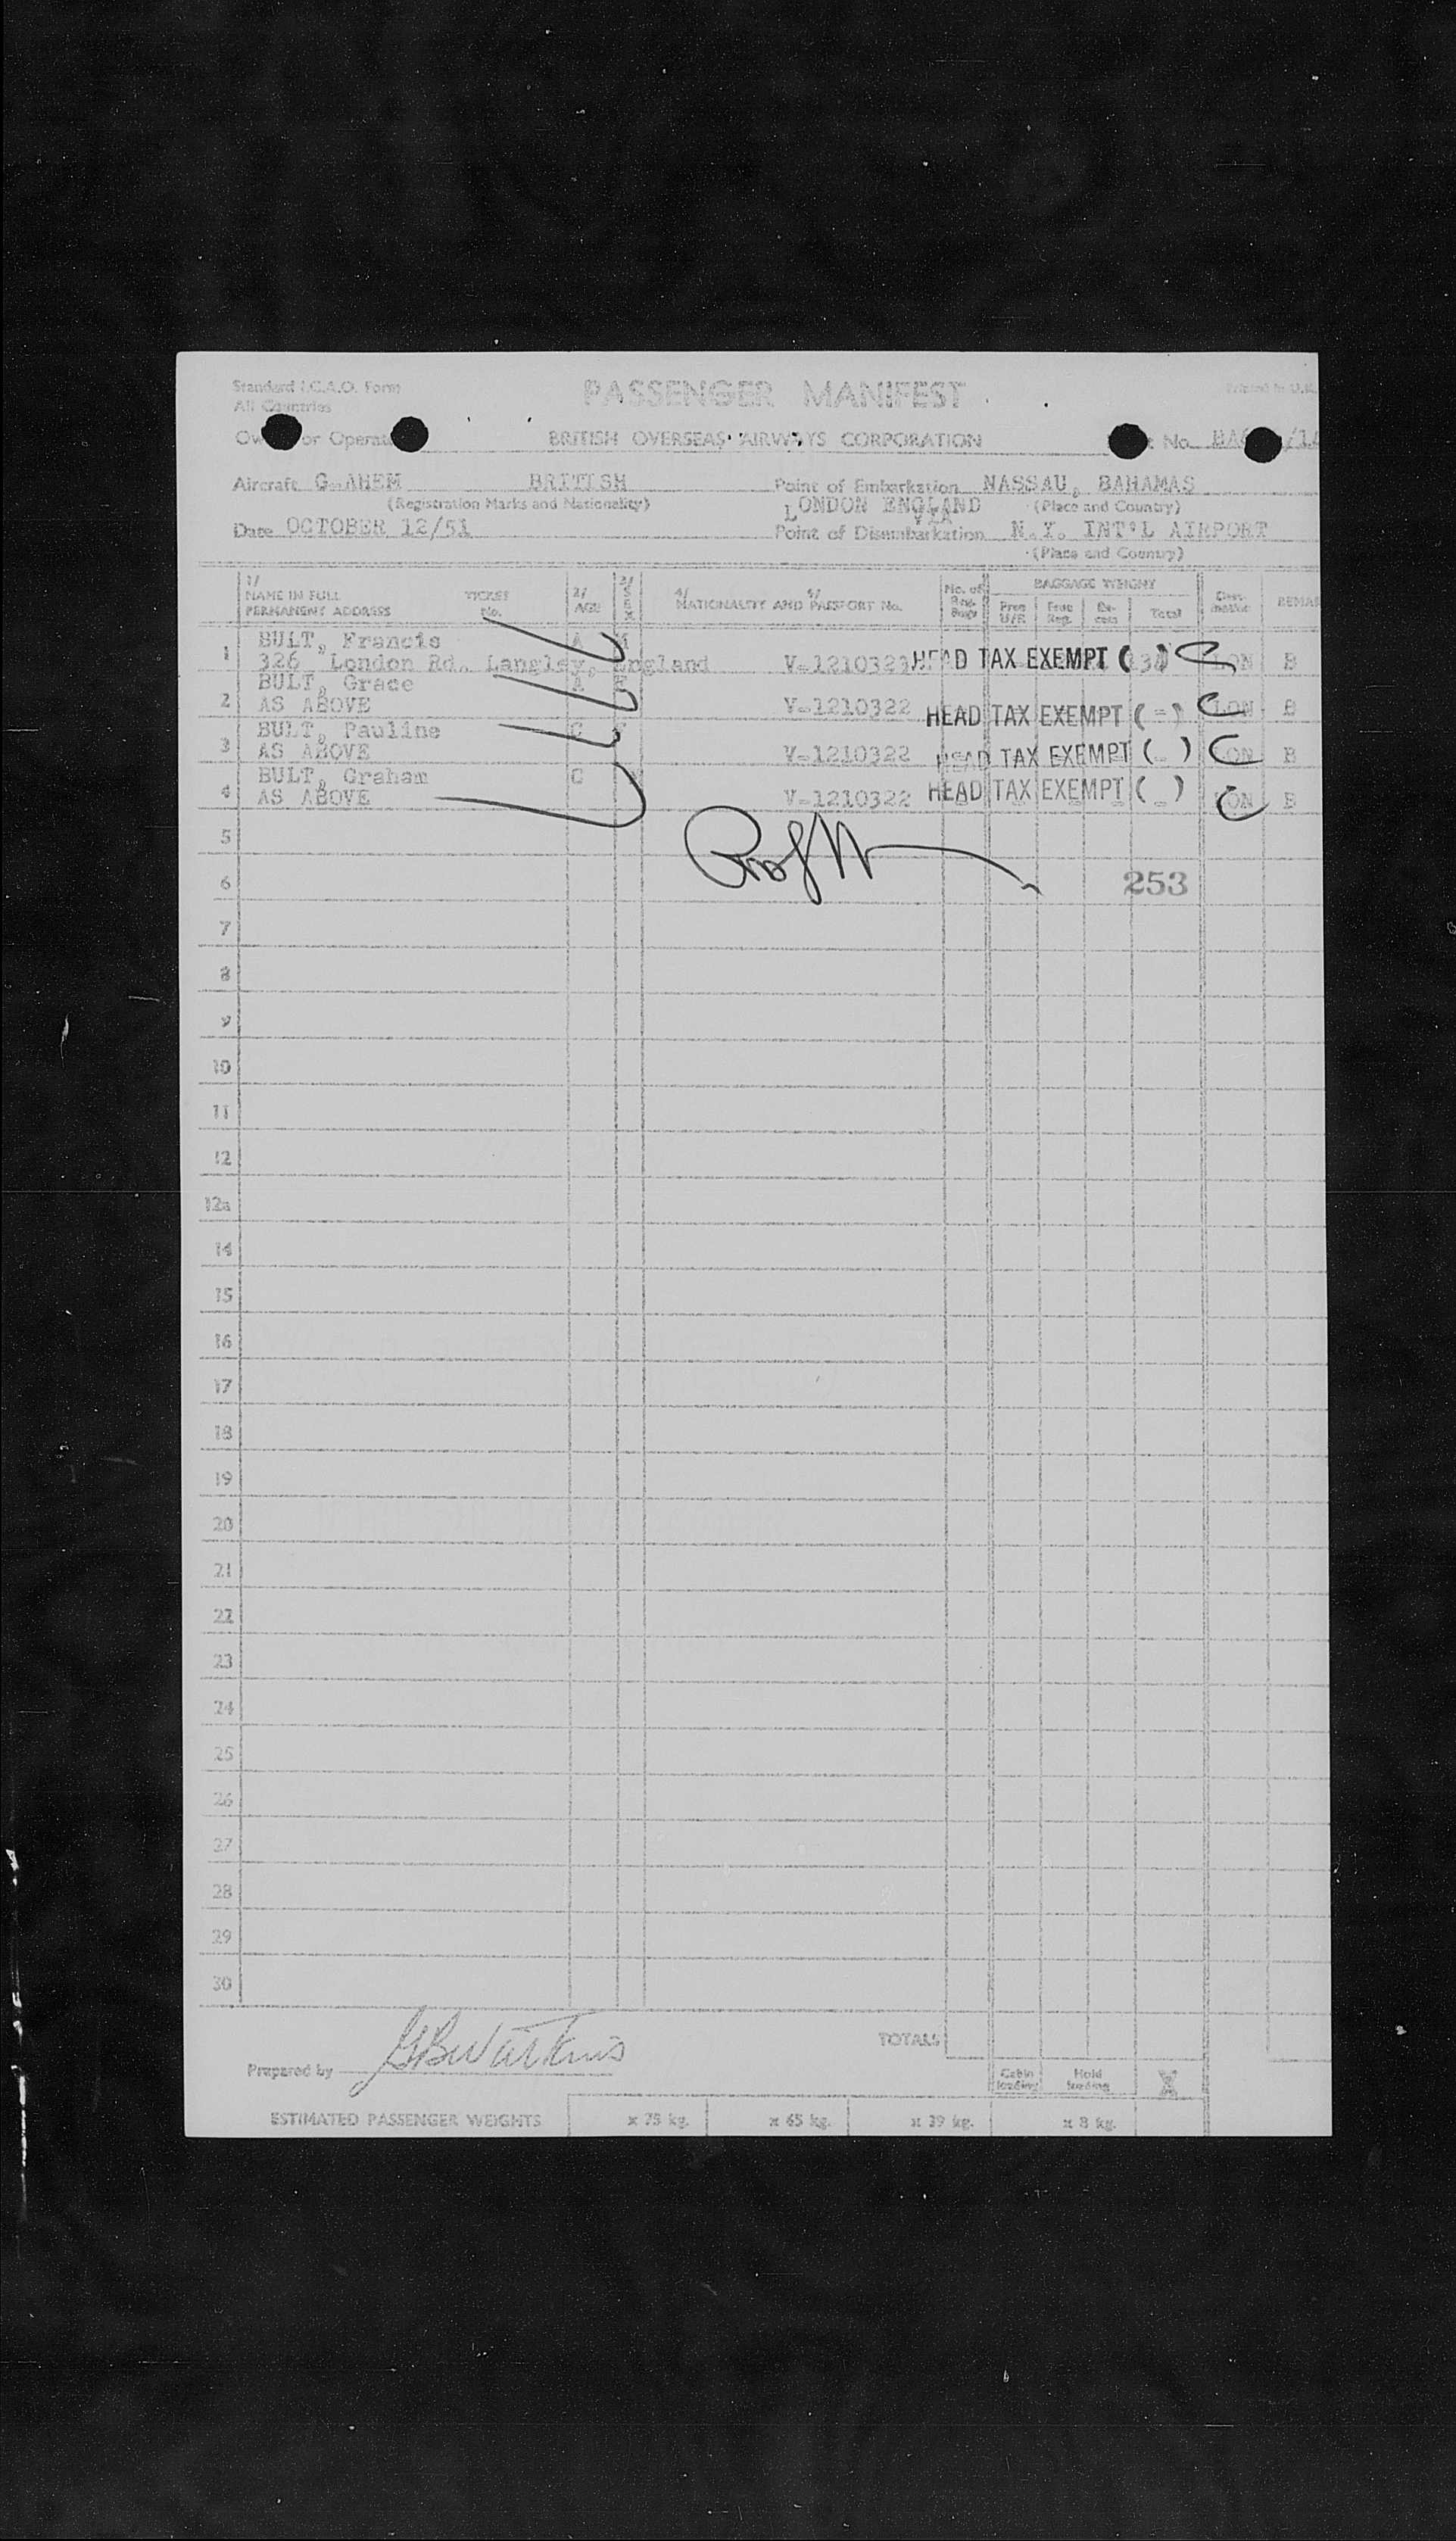 Standard I.C.A.O. Form
All Countries
PASSENGER MANIFEST
Printed in U.K.
or Operat
BRITISH OVERSEAS AIRWAYS CORPORATION
No.
Aircraft G-AHEM BRITISH
(Registration Marks and Nationality)
Point of Embarkation NASSAU, BAHAMAS
(Place and Country)
LONDON ENGLAND
VIA
Date OCTOBER 12/51
Point of Disembarkation N.Y. INT'L AIRPORT
(Place and Country)
1/ NAME IN FULL PERMANENT ADDRESS TICKET No. 2/ AGE 3/ SEX 4/ 5/ NATIONALITY AND PASSPORT No. No. of Reg. Bags BAGGAGE WEIGHT Free U/R Free Reg. Ex-cess Total Dest-ination REMA
BULT, Francis A M
1 326 London Rd. Langley, England V-1210323 HEAD TAX EXEMPT ( ) LON B
BULT, Grace A F
2 AS ABOVE V-1210322 HEAD TAX EXEMPT ( - ) LON B
BULT, Pauline C F
3 AS ABOVE V-1210322 HEAD TAX EXEMPT ( - ) LON B
BULT, Graham C
4 AS ABOVE V-1210322 HEAD TAX EXEMPT ( - ) LON B
5
6 253
7
8
9
10
11
12
12a
14
15
16
17
18
19
20
21
22
23
24
25
26
27
28
29
30
TOTALS
Prepared by
Cabin loading Hold loading
ESTIMATED PASSENGER WEIGHTS x 75 kg. x 65 kg. x 39 kg. x 8 kg.